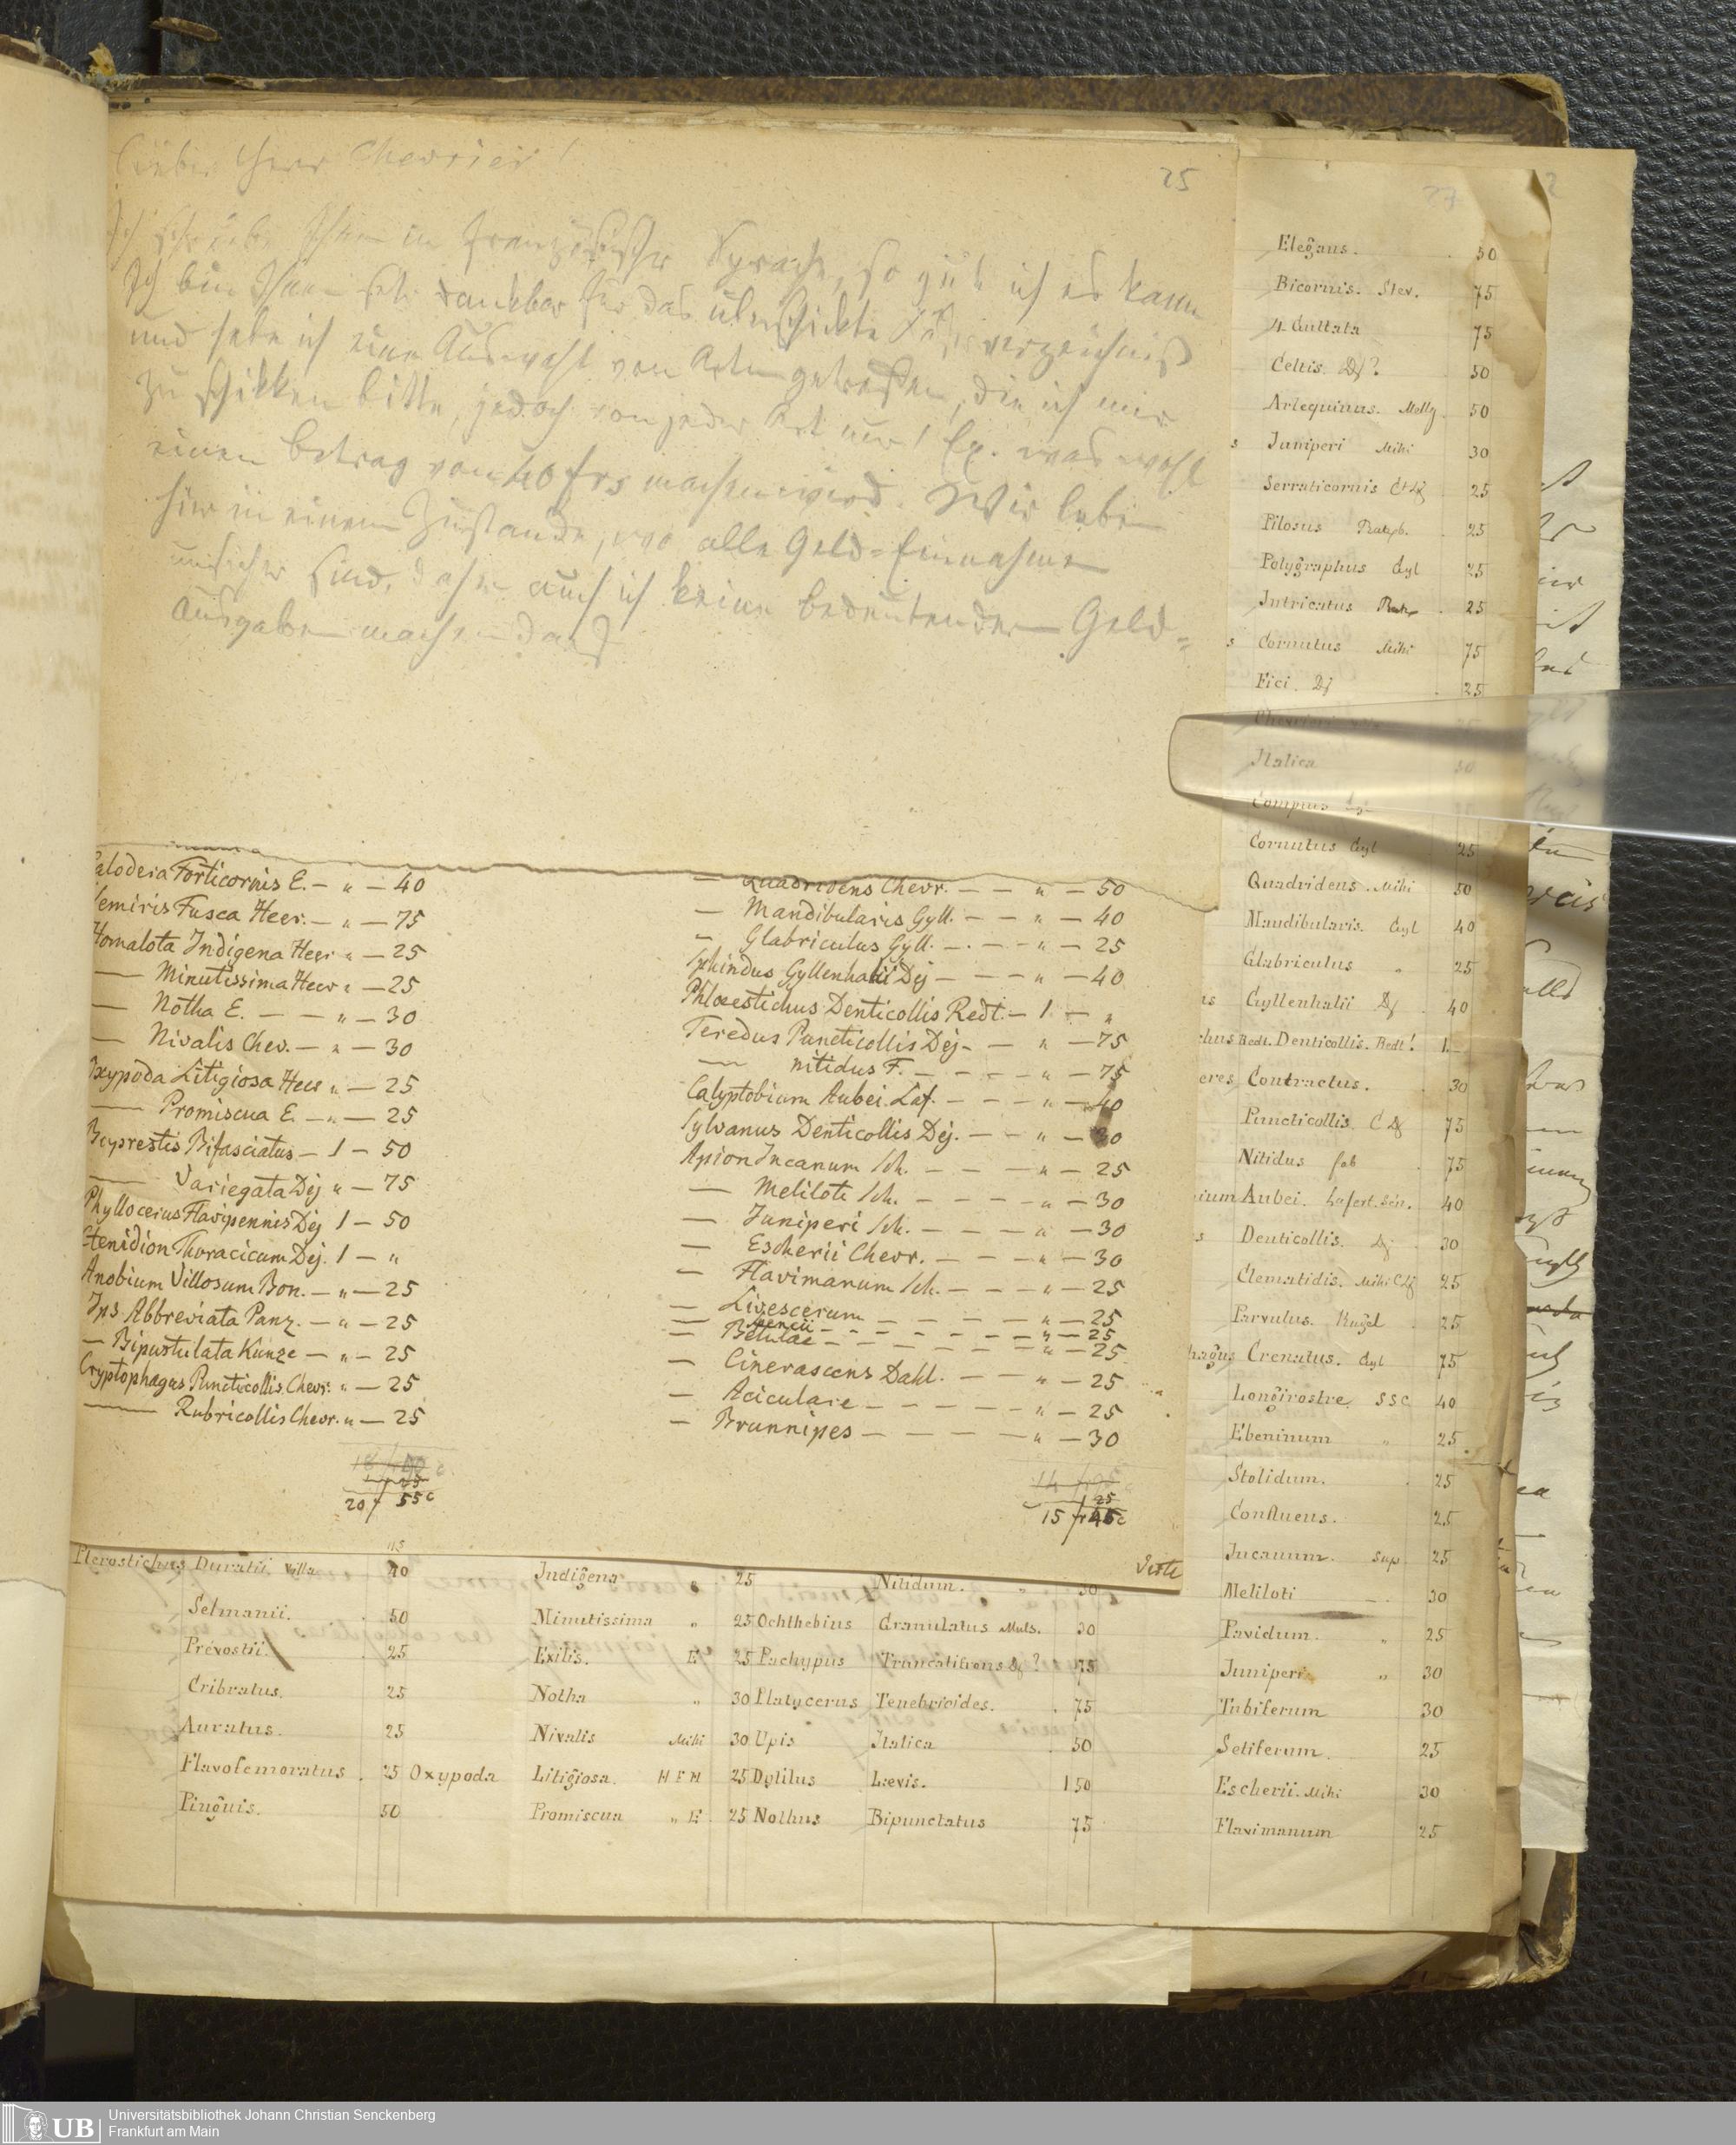 Lieber Herr Chevrier!
25
Ich schreibe Ihnen in französischer Sprache, so gut ich es kann
Ich bin Ihnen sehr dankbar für das überschickte Käferverzeichniß
und habe ich eine Auswahl von Arten getroffen, die ich mir
zu schikken bitte, jedoch von jeder Art nur 1 Ex. was wohl
einen Betrag von 40 frs machen wird. Wir leben
hier in einem Zustande, wo alle Geld=Einnahmen
unsicher sind, daher auch ich keine bedeutenderen Geld=
Ausgaben machen darf
alodera Forticornis E. — „ — 40
emiris Fusca Heer. — „ — 75
Homalota Indigena Heer „ — 25
— Minutissima Heer „ — 25
— Notha E. — — „ — 30
— Nivalis Chev. — „ — 30
Oxypoda Litigiosa Heer „ — 25
— Promiscua E. — „ — 25
Buprestis Bifasciatus — 1 — 50
— Variegata Dej „ — 75
Phyllocerus Flavipennis Dej 1 — 50
Ctenidion Thoracicum Dej. 1 — „
Anobium Villosum Bon. — „ — 25
Ips Abbreviata Panz. — „ — 25
— Bipustulata Kunze — „ — 25
Cryptophagus Puncticollis Chevr. „ — 25
— Rubricollis Chevr. „ — 25
20 f 55 c
— Quadridens Chevr. — — „ — 50
— Mandibularis Gyll. — — „ — 40
— Glabriculus Gyll. — — — „ — 25
Sphindus Gyllenhalii Dej — — — „ — 40
Phloestichus Denticollis Redt. — 1 — „
Teredus Puncticollis Dej — — „ — 75
— nitidus F. — — — — „ — 75
Calyptobium Aubei Laf. — — — „ — 40
Sylvanus Denticollis Dej. — — „ — 30
Apion Incanum Sch. — — — „ — 25
— Meliloti Sch. — — — — „ — 30
— Juniperi Sch. — — — „ — 30
— Escherii Chevr. — — — „ — 30
— Flavimanum Sch. — — — „ — 25
— Livescerum — — — — „ — 25
— Betulae — — — — — „ — 25
— Cinerascens Dahl. — — „ — 25
— Aciculare — — — — — „ — 25
— Brunnipes — — — — „ — 30
25
15 fr 45 c
Verte
Pterostichus Duratii. Villa 40
Selmanii. 50
Prévostii. 25
Cribratus. 25
Auratus. 25
Flavofemoratus 25
Pinguis. 50
Indigena „ 25
Minutissima „ 25
Exilis. E 25
Notha „ 30
Nivalis Mihi 30
Oxypoda Litigiosa. H F H 25
Promiscua „ E 25
Nitidum. „ 30
Ochthebius Granulatus Muls. 30
Pachypus Truncatifrons Dj? 75
Platycerus Tenebrioides. 75
Upis Italica 50
Dytilus Lævis. 1 50
Nothus Bipunctatus 75
27
Elegans. 50
Bicornis. Stev. 75
4 Guttata 75
Celtis. Dj? 50
Arlequinus. Melly. 50
s Juniperi Mihi 30
Serraticornis Ct Dj 25
Pilosus Ratzb. 25
Polygraphus Gyl 25
Intricatus Ratz 25
s Cornutus Mihi 75
Fici. Dj 25
Italica 50
Comptus Dj
Cornutus Gyl 25
Quadridens. Mihi 50
Mandibularis. Gyl 40
Glabriculus „ 25
us Gyllenhalii Dj 40
chus Redt. Denticollis. Redt! 1.—
eres Contractus. 30
Puncticollis. C Dj 75
Nitidus fab 75
ium Aubei. Lafert. Sén. 40
s Denticollis. Dj 30
Clematidis. Mihi C Dj 25
Parvulus. Kugel 25
hagus Crenatus. Gyl 75
Longirostre. SSC 40
Ebeninum „ 25
Stolidum. 25
Confluens. 25
Incanum. Sup 25
Meliloti — 30
Pavidum. „ 25
Juniperi „ 30
Tubiferum 30
Setiferum. 25
Escherii. Mihi 30
Flavimanum 25
Universitätsbibliothek Johann Christian Senckenberg
Frankfurt am Main
UB